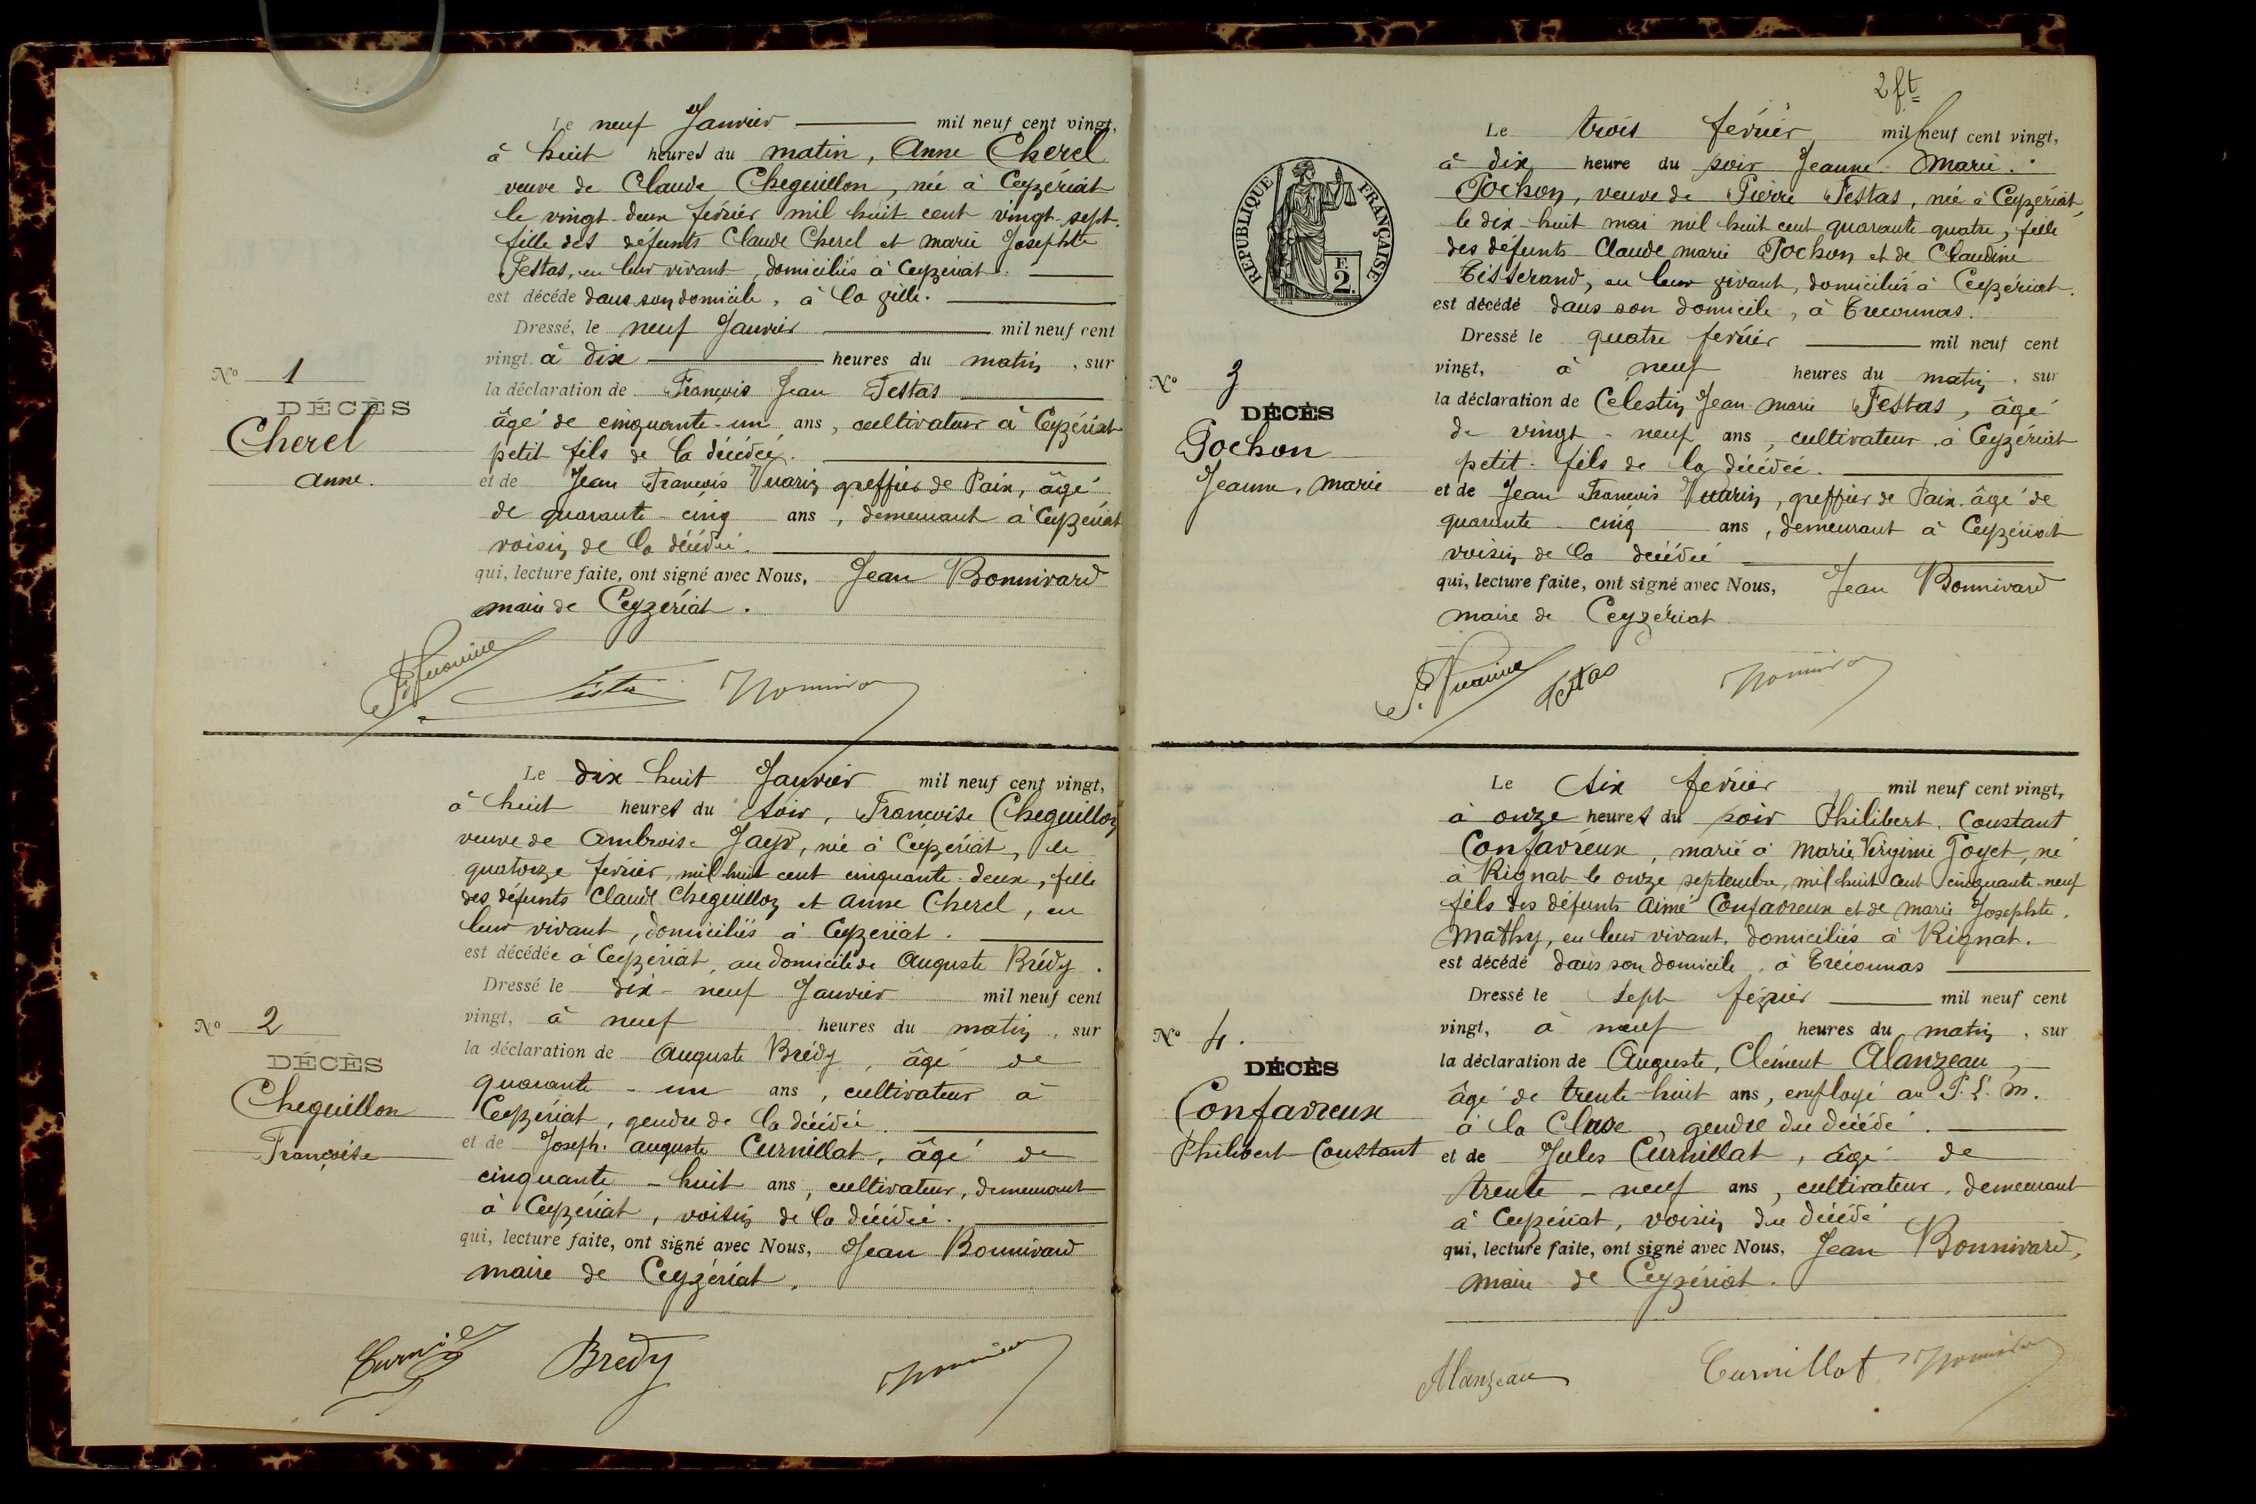 Le neuf Janvier mil neuf cent vingt,
à huit heures du matin, Anne Cherel
veuve de Claude Cheguillon, née à Ceyzériat
le vingt-deux février mil huit cent vingt-sept
fille des défunts Claude Cherel et marie Josephte
Festas, en leur vivant, domiciliés à Ceyzériat.
est décédé dans son domicile, à la ville.
Dressé, le neuf Janvier mil neuf cent
vingt à dix heures du matin, sur
la déclaration de François Jean Festas
âgé de cinquante-un ans, cultivateur à Ceyzériat
petit fils de la décédée.
et de Jean François Vuarin greffier de Paix, âgé
de quarante-cinq ans, demeurant à Ceyzériat
voisin de la décédée.
qui, lecture faite, ont signé avec Nous, Jean Bonnivard
maire de Ceyzériat.
No 1
DÉCÈS
Cherel
anne.
Le dix-huit Janvier mil neuf cent vingt,
à huit heures du soir, Françoise Cheguillon
veuve de Ambroise Jayr, née à Ceyzériat, le
quatorze février, mil huit cent cinquante-deux, fille
des défunts Claude Cheguillon et anne Cherel, en
leur vivant, domiciliés à Ceyzériat.
est décédée à Ceyzériat, au domicile de Auguste Brédy.
Dressé le dix-neuf Janvier mil neuf cent
vingt, à neuf heures du matin, sur
la déclaration de Auguste Brédy, âgé de
quarante-un ans, cultivateur à
Ceyzériat, gendre de la décédée.
et de Joseph. auguste Curnillat, âgé de
cinquante-huit ans, cultivateur, demeurant
à Ceyzériat, voisin de la décédée.
qui, lecture faite, ont signé avec Nous, Jean Bonnivard
maire de Ceyzériat.
No 2
DÉCÈS
Cheguillon
Françoise
Bredy
2 ft
REPUBLIQUE FRANÇAISE
F.
2.
Le trois février mil neuf cent vingt,
à dix heure du soir Jeanne Marie.
Pochon, veuve de Pierre Festas, née à Ceyzériat,
le dix-huit mai mil huit cent quarante quatre, fille
des défunts Claude marie Pochon et de Claudine
Tisserand, en leur vivant, domiciliés à Ceyzériat.
est décédé dans son domicile, à Treconnas.
Dressé le quatre février mil neuf cent
vingt, à neuf heures du matin, sur
la déclaration de Celestin Jean marie Festas, âgé
de vingt-neuf ans, cultivateur à Ceyzériat
petit-fils de la décédée.
et de Jean François Vuarin, greffier de Paix, âgé de
quarante-cinq ans, demeurant à Ceyzériat
voisin de la décédée
qui, lecture faite, ont signé avec Nous, Jean Bonnivard
maire de Ceyzériat
No 3
DÉCÈS
Pochon
Jeanne, marie
Festas
Le six février mil neuf cent vingt,
à onze heures du soir Philibert, Constant
Confavreux, marié à Marie Virginie Goyet, né
à Rignat le onze septembre, mil huit cent cinquante-neuf
fils des défunts Aimé Confavreux et de marie Josephte.
Mathy, en leur vivant, domiciliés à Rignat.
est décédé dans son domicile, à Treconnas
Dressé le sept février mil neuf cent
vingt, à neuf heures du matin, sur
la déclaration de Auguste, Clément Alanzeau,
âgé de trente-huit ans, employé au P. L. M.
à la Cluse, gendre du décédé.
et de Jules Curnillat, âgé de
trente-neuf ans, cultivateur, demeurant
à Ceyzériat, voisin du décédé
qui, lecture faite, ont signé avec Nous, Jean Bonnivard,
maire de Ceyzériat.
No 4.
DÉCÈS
Confavreux
Philibert Constant
Alanzeau
Curnillat